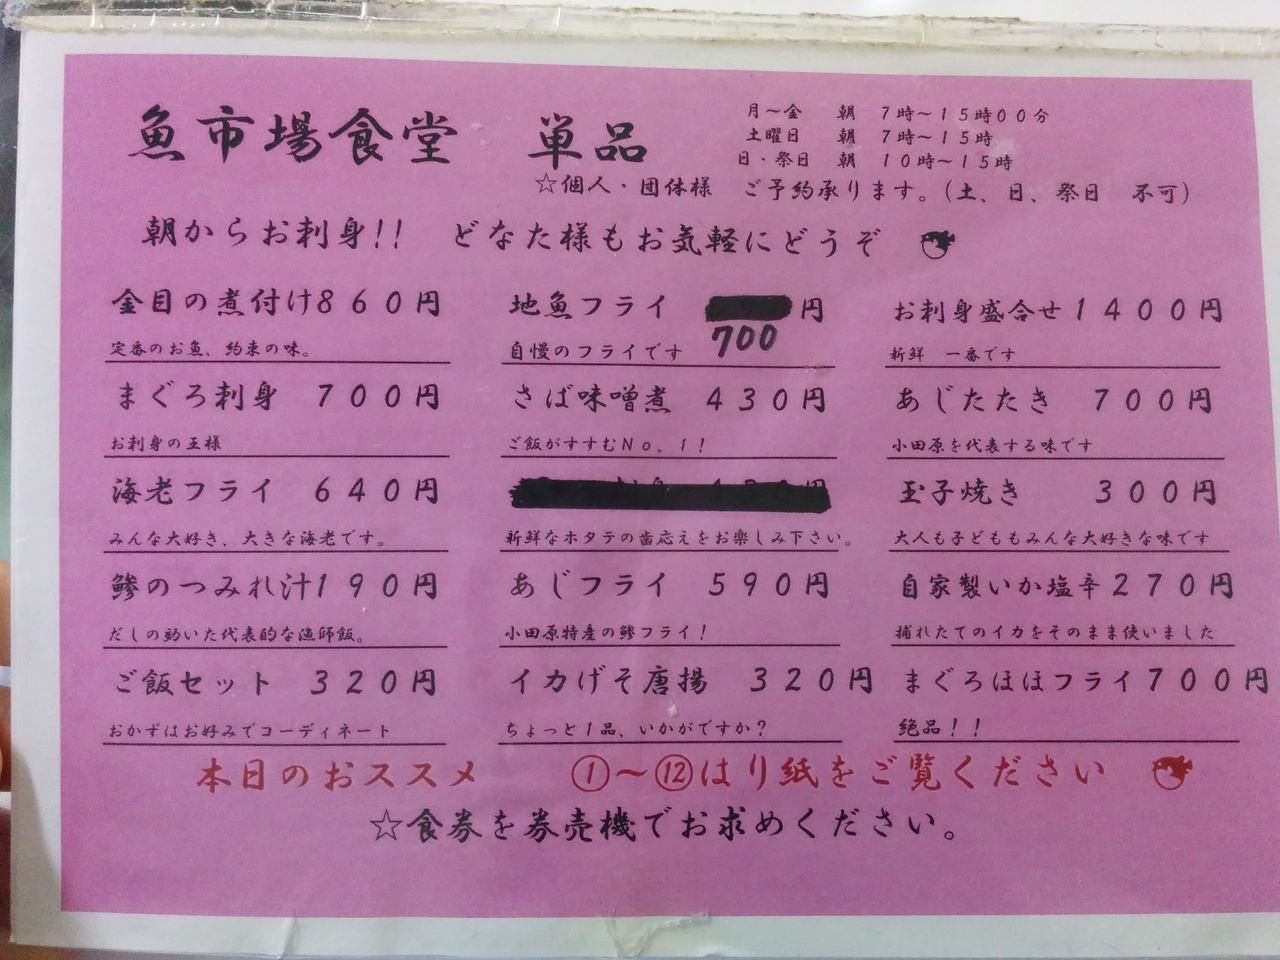 魚市場食堂　単品
月～金　朝　７時～１５時００分
土曜日　朝　７時～１５時
日・祭日　朝　１０時～１５時
☆個人・団体様　ご予約承ります。（土、日、祭日　不可）
朝からお刺身！！　どなた様もお気軽にどうぞ
金目の煮付け８６０円
定番のお魚、約束の味。
まぐろ刺身　７００円
お刺身の王様
海老フライ　６４０円
みんな大好き、大きな海老です。
鯵のつみれ汁１９０円
だしの効いた代表的な漁師飯。
ご飯セット　３２０円
おかずはお好みでコーディネート
地魚フライ　円
700
自慢のフライです
さば味噌煮　４３０円
ご飯がすすむＮｏ，１！
新鮮なホタテの歯応えをお楽しみ下さい。
あじフライ　５９０円
小田原特産の鯵フライ！
イカげそ唐揚　３２０円
ちょっと１品、いかがですか？
お刺身盛合せ１４００円
新鮮　一番です
あじたたき　７００円
小田原を代表する味です
玉子焼き　３００円
大人も子どももみんな大好きな味です
自家製いか塩辛２７０円
捕れたてのイカをそのまま使いました
まぐろほほフライ７００円
絶品！！
本日のおススメ　①～⑫はり紙をご覧ください
☆食券を券売機でお求めください。